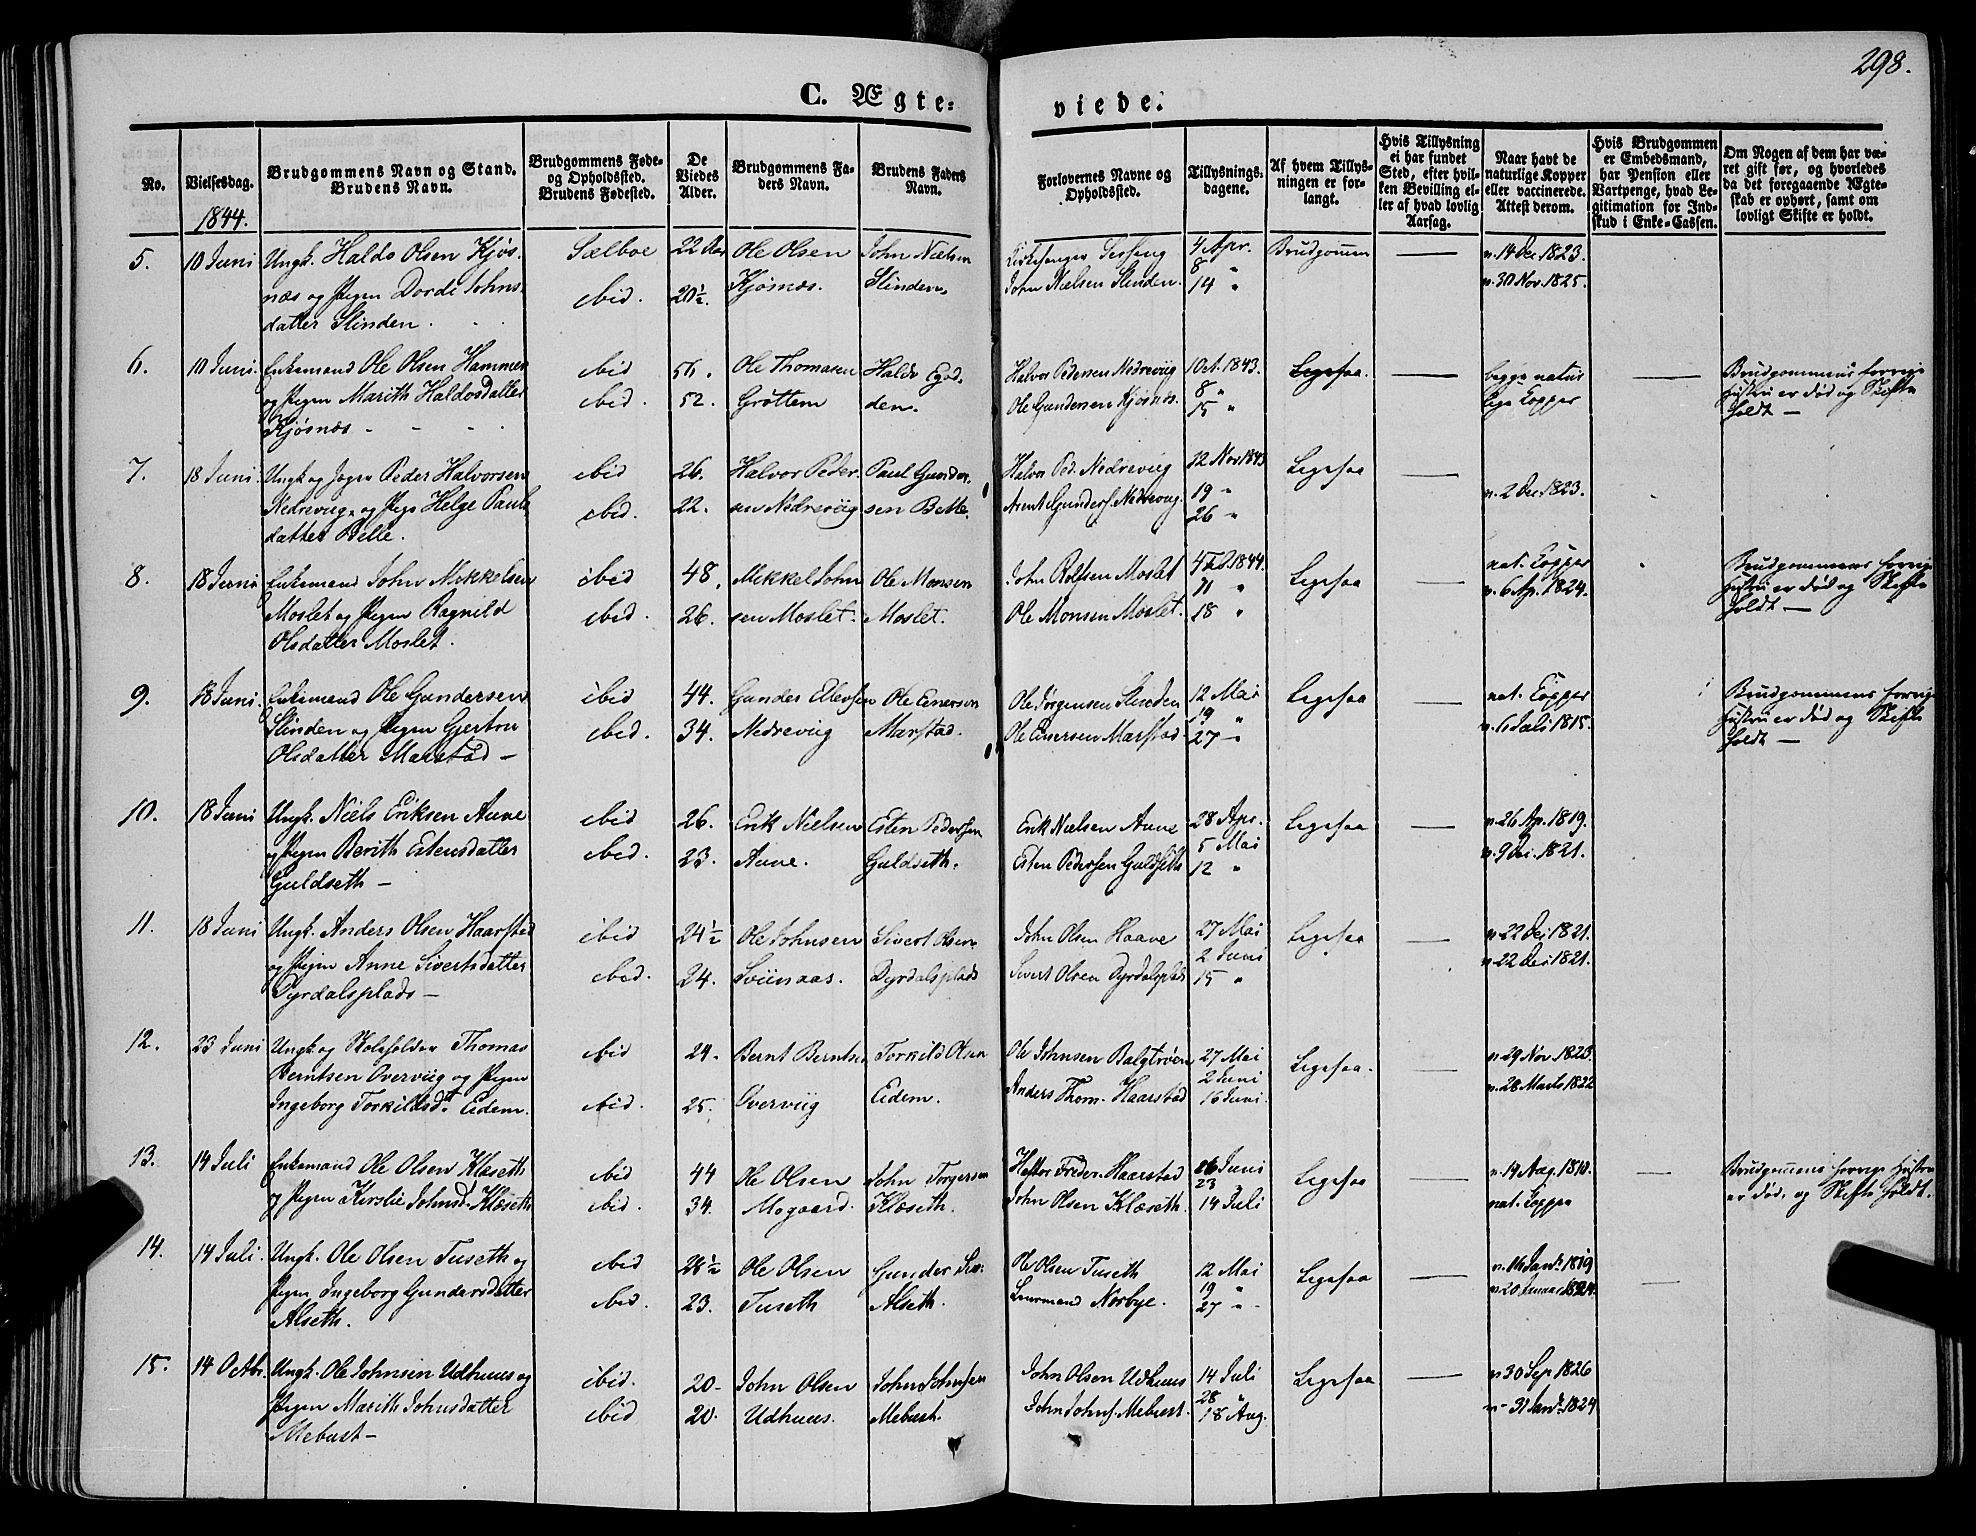 298.
C. Ægte-
viede.
No.
Vielsesdag.
1844.
Brudgommens Navn og Stand.
Brudens Navn.
Brudgommens Føde-
og Opholdssted.
Brudens Fødested.
De
Viedes
Alder.
Brudgommens Fa-
ders Navn.
Brudens Faders
Navn.
Forlovernes Navne og
Opholdssted.
Tillysnings-
dagene.
Af hvem Tillys-
ningen er for-
langt.
Hvis Tillysning
ei har fundet
Sted, efter hvil-
ken Bevilling el-
ler af hvad lovlig
Aarsag.
Naar havt de
naturlige Kopper
eller vaccinerede.
Attest derom.
Hvis Brudgommen
er Embedsmand,
har Pension eller
Vartpenge, hvad Le-
gitimation for Ind-
skud i Enke-Cassen.
Om Nogen af dem har væ-
ret gift før, og hvorledes
da det foregaaende Ægte-
skab er ophørt, samt om
lovligt Skifte er holdt.
5. 10 Juni Ungk. Haldo Olsen Kjøs- Sælboe 22 Aar Ole Olsen John Nielsen 4 Apr. Brudgommen — v. 14 Dec 1823.
næs og Pigen Dorde Johns- ibid. 20½. Kjøsnæs. Slinden. John Nielsen Slinden. 8 " v. 30 Nov. 1825.
datter Slinden. 14 "
6. 10 Juni. Enkemand Ole Olsen Hammer ibid 56. Ole Thomasen Haldo Halvor Pedersen Nedreviig 1 Oct. 1843. Ligesaa. begge natur — Brudgommens forrige
og Pigen Marith Haldosdatter ibid. 52. Grøttem den. Ole Gundersen Kjøsnæs. 8 " lige Kopper Hustru er død og Skifte
Kjøsnæs - 15 " holdt —
7. 18 Juni. Ungk og Peder Halvorsen ibid 26. Halvor Peder- Paul Gunder- Halvor Ped. Nedreviig 12 Nov 1843 Ligesaa —
Nedreviig og Pige Helge Pauls ibid. 22. sen Nedreviig sen Belle. Arnt Gunders. Nedreviig. 19 " v. 2 Dec 1823.
datter Belle. 26 "
8. 18 Juni Enkemand John Mikkelsen ibid 48. Mikkel John Ole Monsen John Rolfsen Moslet 4 Feb 1844. Ligesaa — nat. Kopper Brudgommens forrige
Moslet og Pigen Ragnild ibid. 26. sen Moslet. Moslet. Ole Monsen Moslet. 11 " v. 6 Ap. 1824. Hustru er død og Skifte
Olsdatter Moslet. 18 " holdt —
9. 18 Juni. Enkemand Ole Gundersen ibid 44. Gunder Ole Einersen Ole Jørgensen Slinden 12 Mai Ligesaa — nat. Kopper Brudgommens forrige
Slinden og Pigen Gjertru ibid. 34. Nedreviig Marstad. Ole Einersen Marstad 19 " v. 6 Juli 1815. Hustru er død og Skifte
Olsdatter Marstad — 27 " holdt —
10. 18 Juni Ungk. Niels Eriksen Aune ibid 26. Erik Nielsen Esten Pedersen Erik Nielsen Aune 28 Apr. Ligesaa — v. 26 Ap. 1819.
og Pigen Berith Estensdatter ibid. 23. Aune. Guldseth. Esten Pedersen Guldseth 5 Mai v. 9 Dec. 1821.
Guldseth — 12 "
11. 18 Juni Ungk. Anders Olsen Haarstad ibid 24½ Ole Johnsen Sivert Olsen John Olsen Haave 27 Mai Ligesaa — v. 22 Dec 1821.
og Pigen Anne Sivertsdatter ibid. 24. Sviinaas. Dyrdalsplads Sivert Olsen Dyrdalsplads 2 Juni v. 22 Dec 1821.
Dyrdalsplads — 15 "
12. 23 Juni Ungk og Skoleholder Thomas ibid 24. Bernt Berntsen Torkild Olsen Ole Johnsen Balgtrøen 27 Mai Ligesaa. — v. 29 Nov. 1823.
Berntsen Overviig og Pigen Overviig Eidem. Anders Thom. Haarstad 2 Juni v. 28 Marts 1822
Ingeborg Torkildsd.r Eidem. ibid. 25. 16 Juni.
13. 14 Juli Enkemand Ole Olsen Klæseth ibid 44 Ole Olsen John Torgersen Freder. Haarstad 16 Juni Ligesaa v. 19 Aug. 1810. — Brudgommens forrige Hustru
og Pigen Kirstie Johnsd. Klæseth ibid. 34. Mogaard. Klæseth. John Olsen Klæseth. 23 nat. Kopper er død og Skifte holdt.
14 Juli
14. 14 Juli. Ungk. Ole Olsen Tuseth og ibid 26½ Ole Olsen Gunder Ole Olsen Tuseth 12 Mai Ligesaa — v. 16 Jan. 1819 —
Pigen Ingeborg Gundersdatter ibid. 23. Tuseth Alseth. Norbye. 19 " v. 20 Januar 1824.
Alseth. 27 "
15. 14 Octbr. Ungk. Ole Johnsen Udhuus og ibid. 20. John Olsen John Johnsen John Olsen Udhuus 14 Juli Ligesaa — v 30 Sep 1826
Pigen Marith Johnsdatter ibid 20. Udhuus. Mebust. John Johns. Mebust. 28 " v. 31 Jan. 1824
Mebust — 18 Aug.